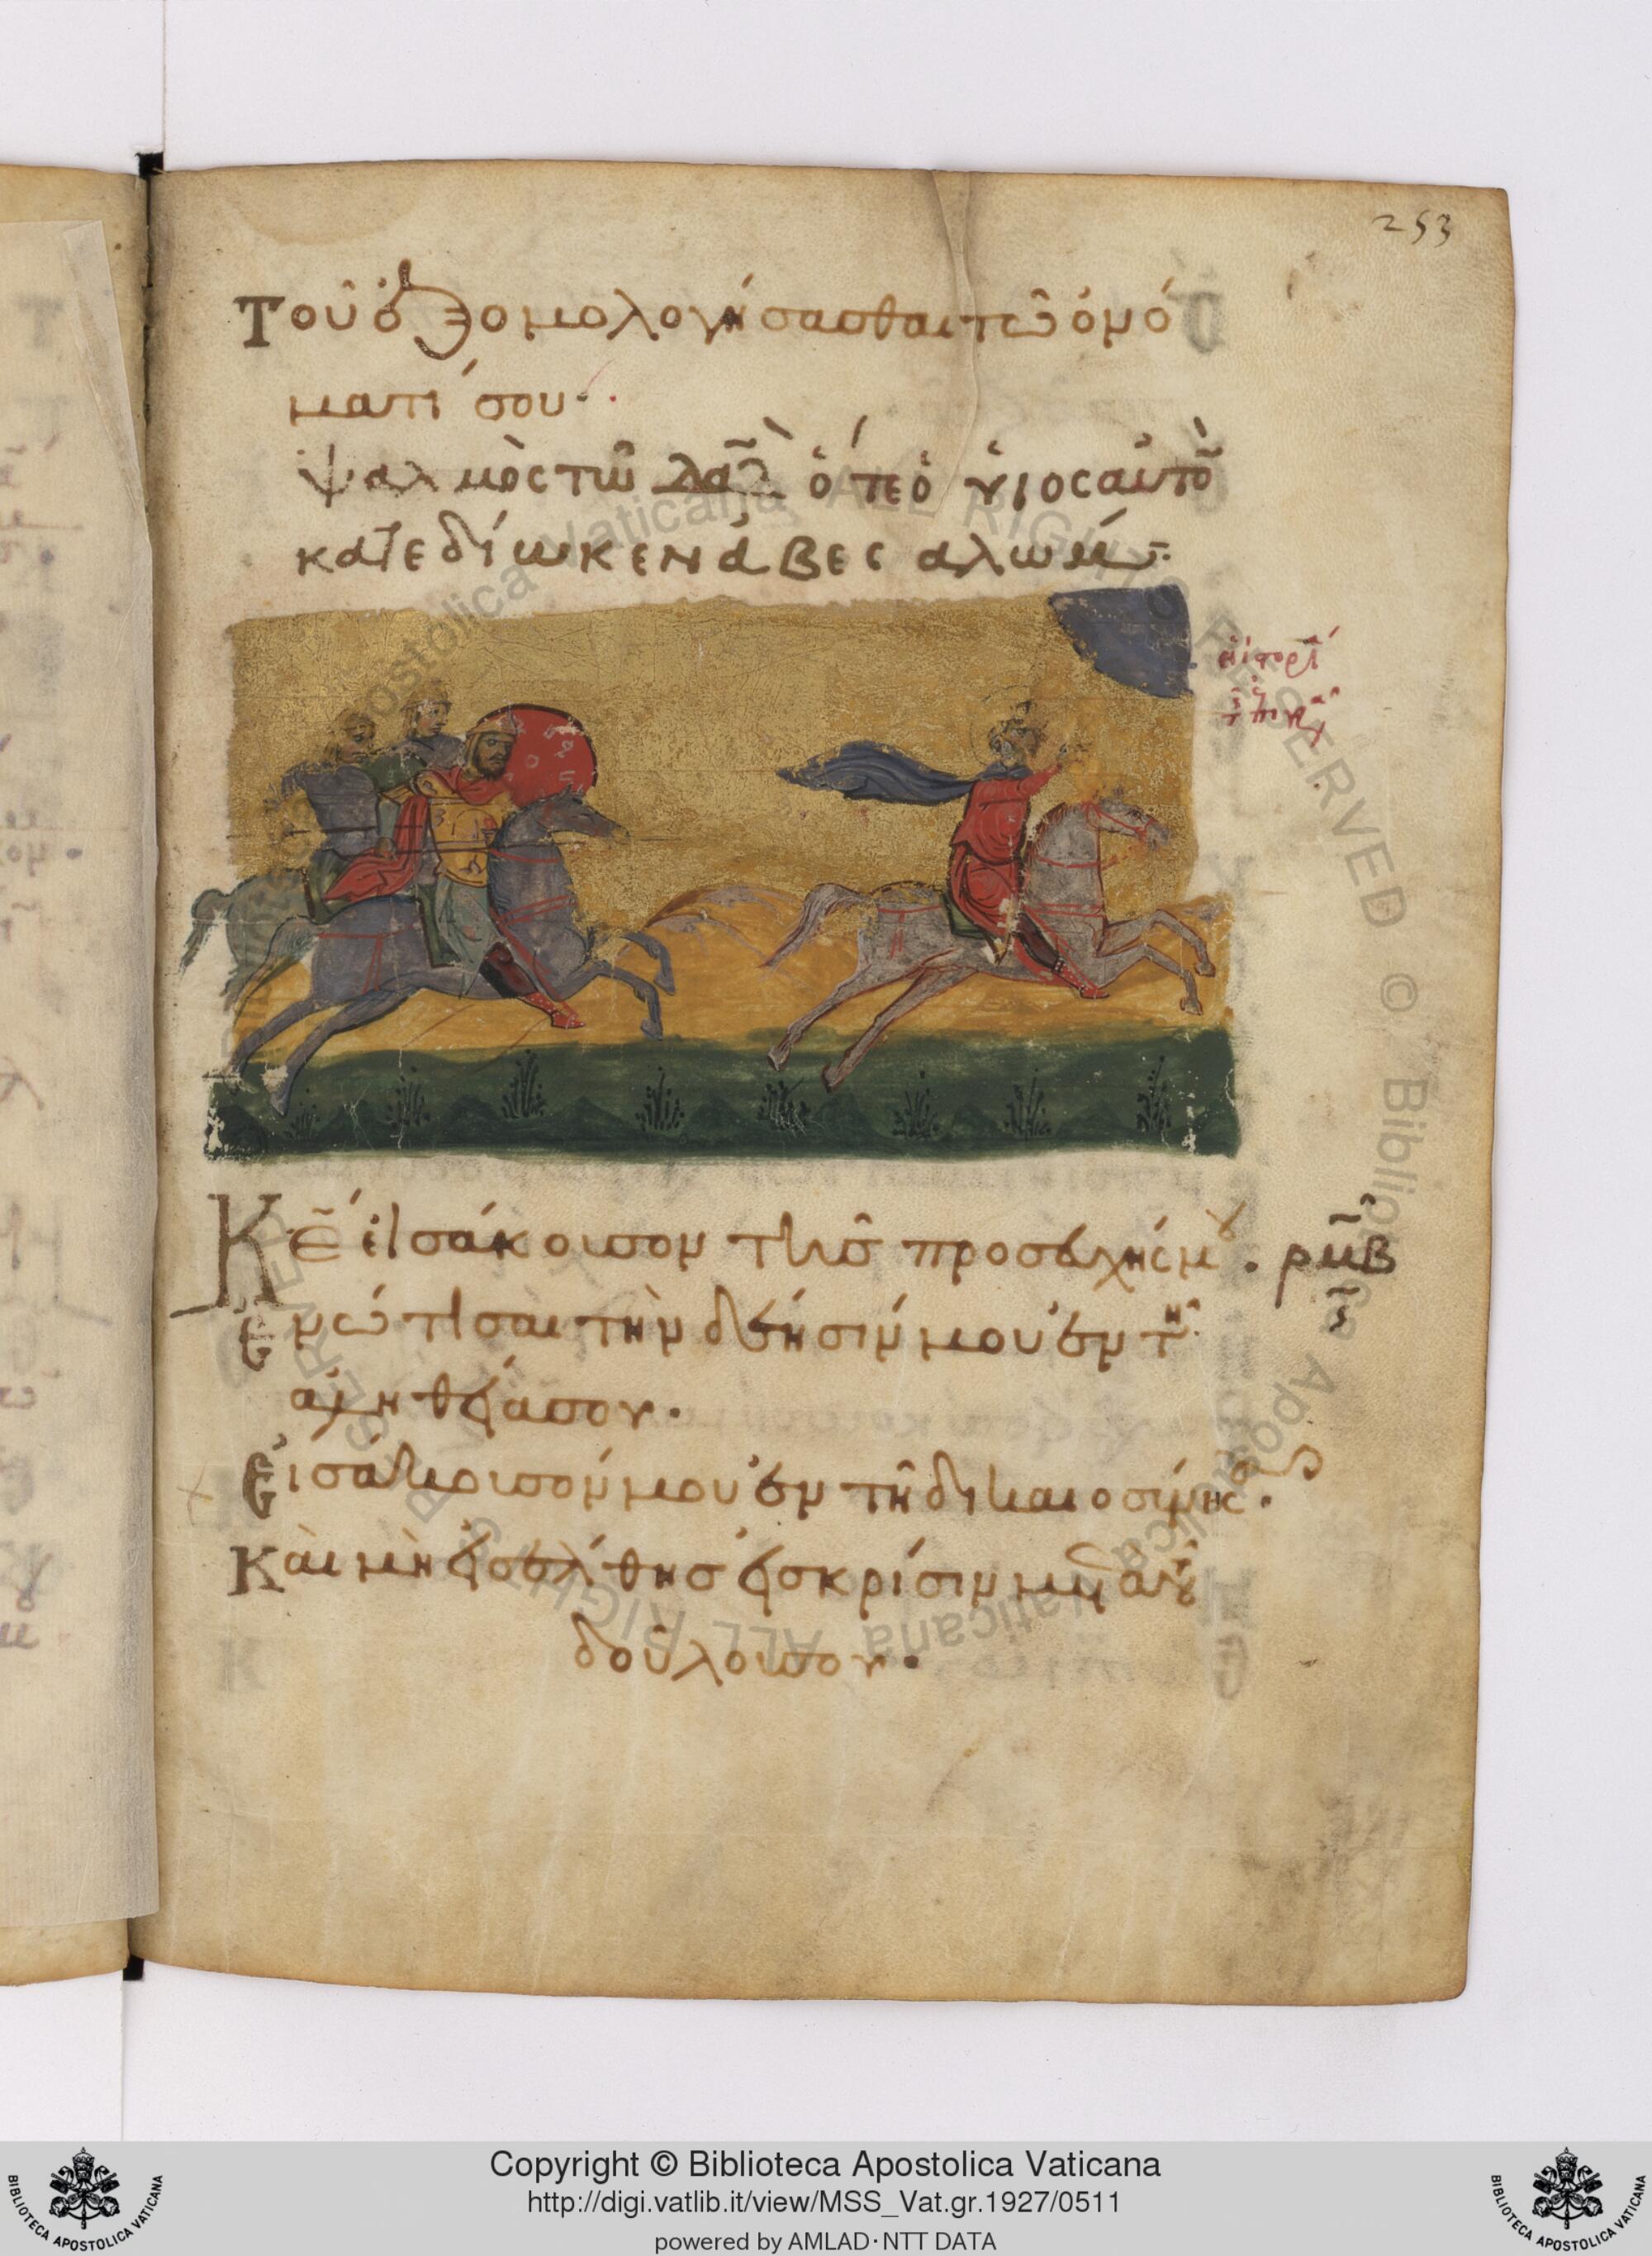 253
Τοῦ ἐξομολογήσασθαι τῶ ὀνό
ματί σου·
ψαλμὸς τῶ δαδ̃ ὅτε ὁ ὑιὸς αὐτοῦ
κατεδίωκεν ἀβεσαλώμ:
Κε̃ εἰσάκουσον τῆς προσευχῆς μου· ρμβ
ἐνώτισαι τὴν δέησίν μου ἐν τῆ
ἀληθεία σου·
Εἰσάκουσόν μου ἐν τῆ δικαιοσύνη σου·
Καὶ μὴ εἰσέλθης εἰς κρίσιν μετὰ τοῦ
δούλου σου·
ALL RIGHTS RESERVED © Biblioteca Apostolica Vaticana
Copyright © Biblioteca Apostolica Vaticana
http://digi.vatlib.it/view/MSS_Vat.gr.1927/0511
powered by AMLAD·NTT DATA
BIBLIOTECA APOSTOLICA VATICANA
BIBLIOTECA APOSTOLICA VATICANA